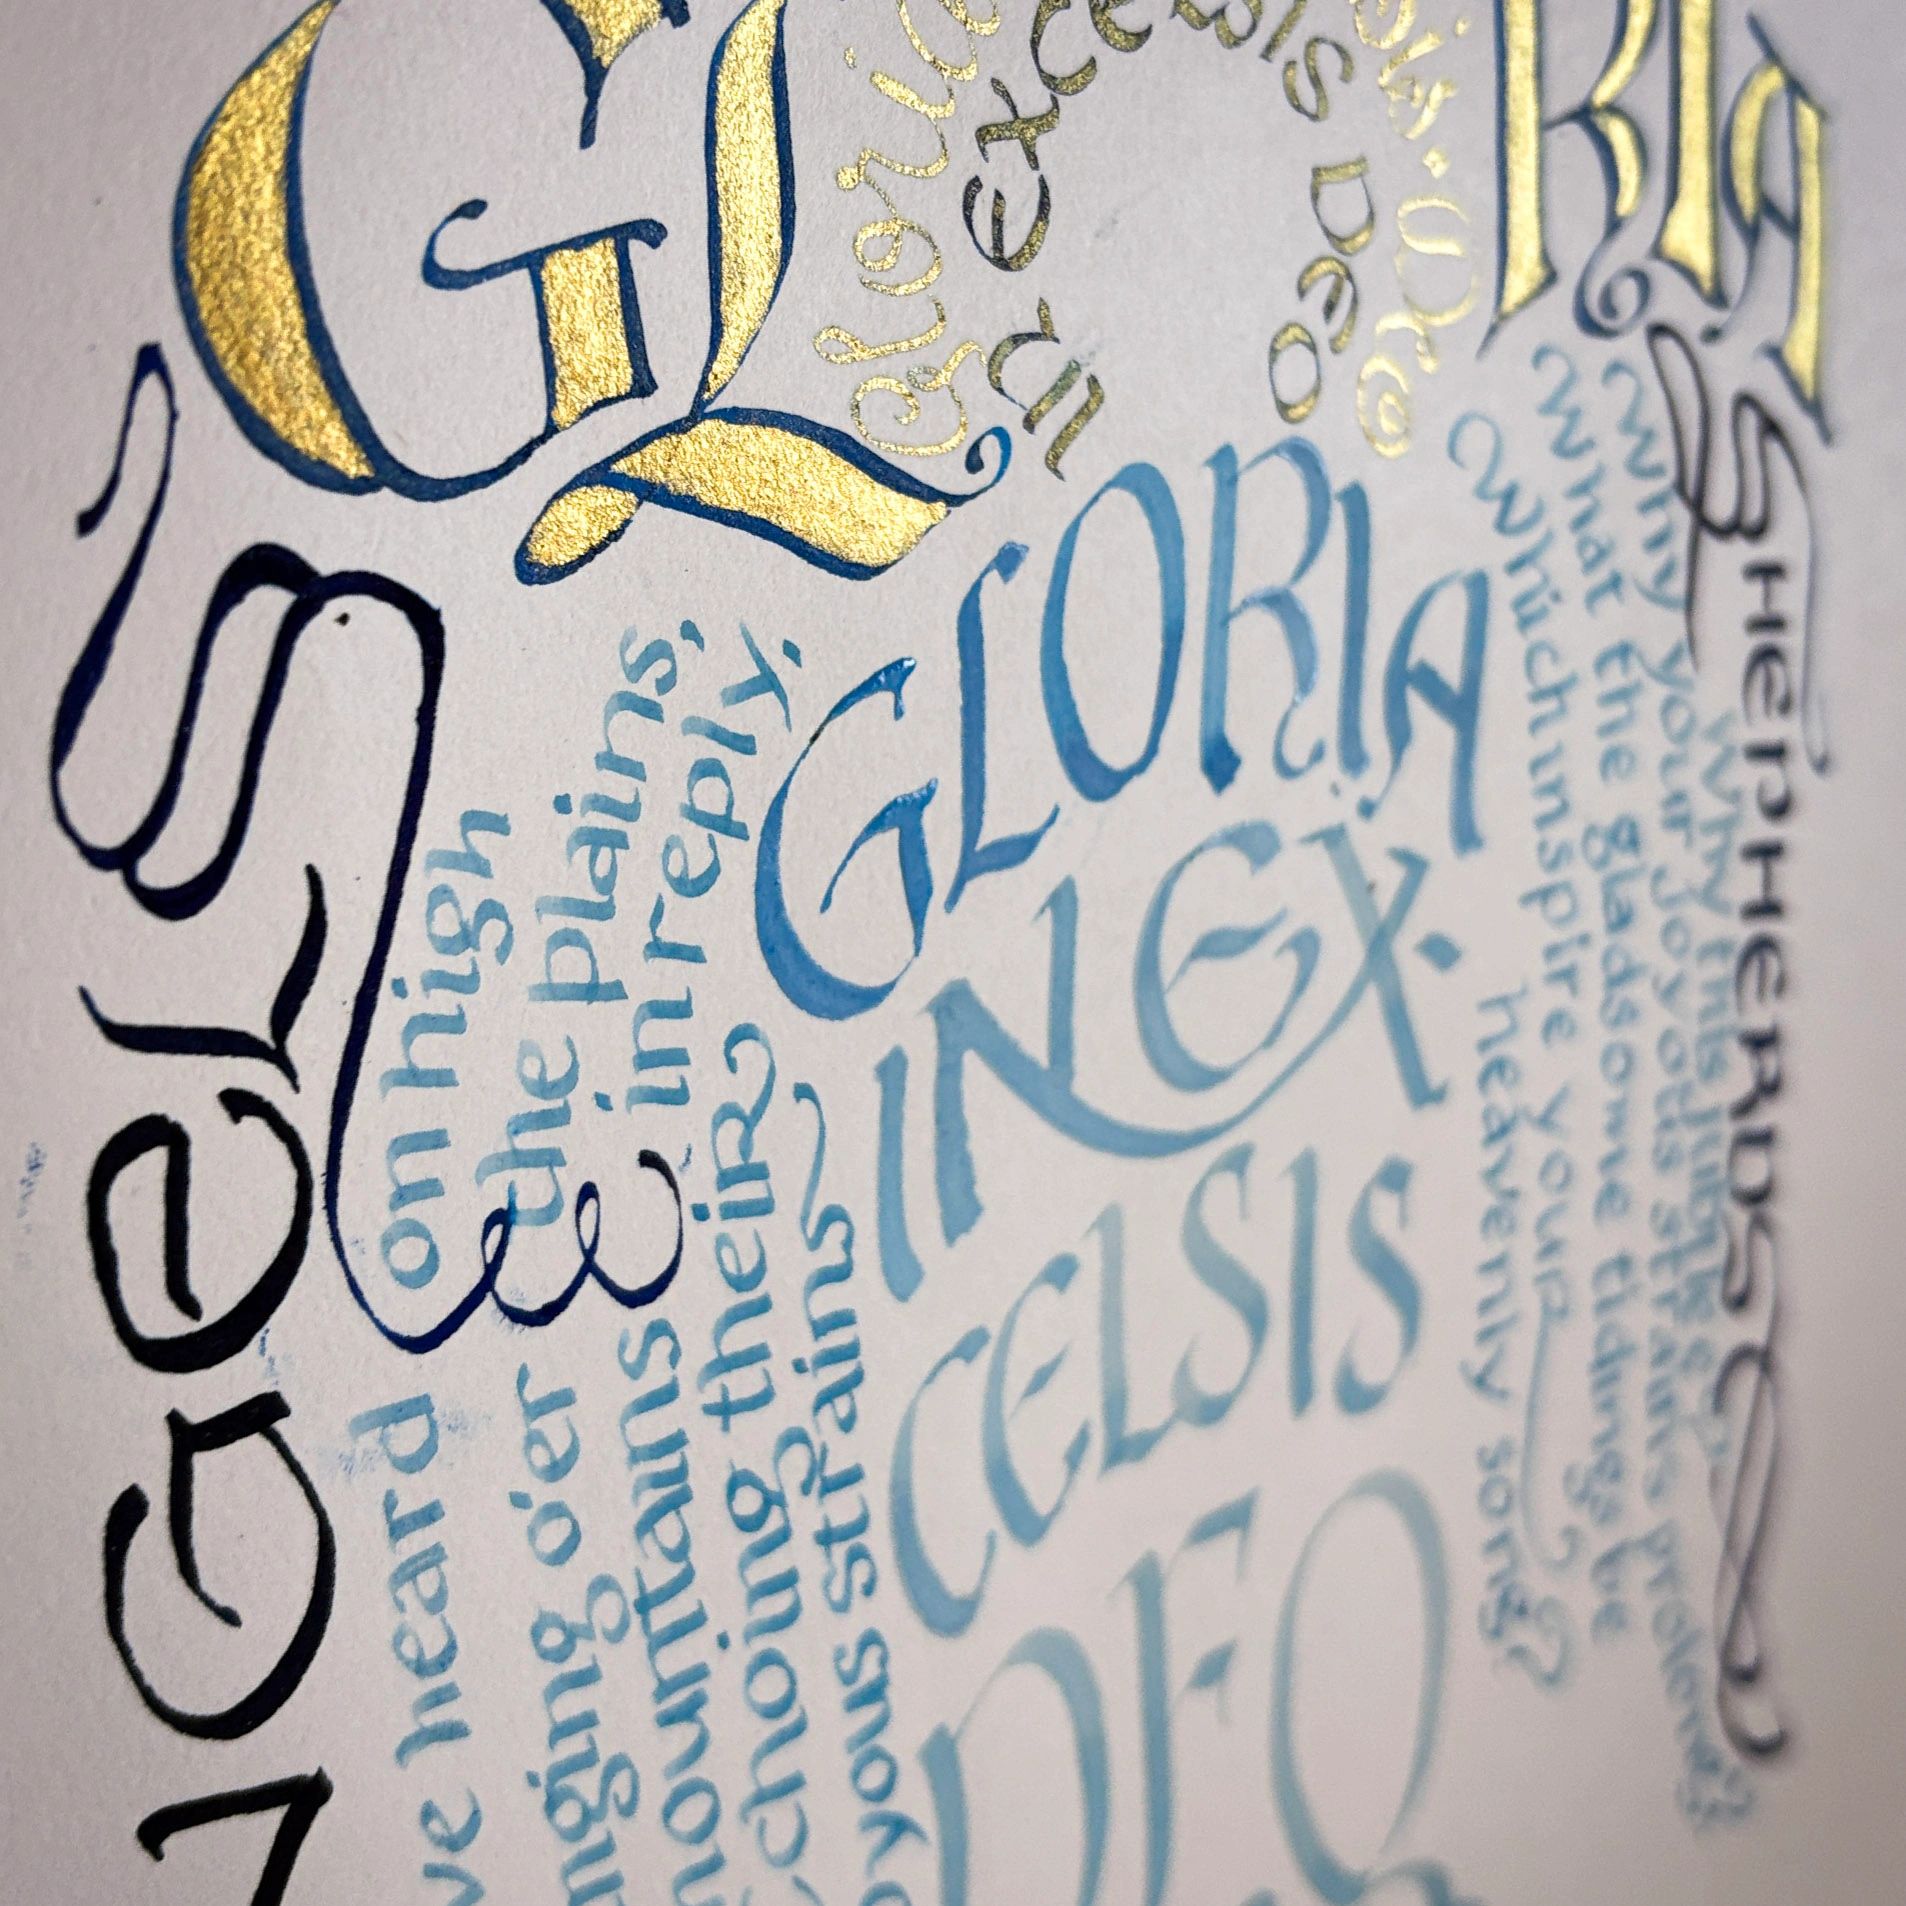 GL
RIA
Gloria
in excelsis Deo
GELS
we heard on high
nging o'er the plains,
mountains in reply.
echoing their
oyous strains
GLORIA
IN EX·
CELSIS
DEO
SHEPHERDS
why this jubilee?
why your joyous strains prolong?
what the gladsome tidings be
which inspire your
heavenly song?